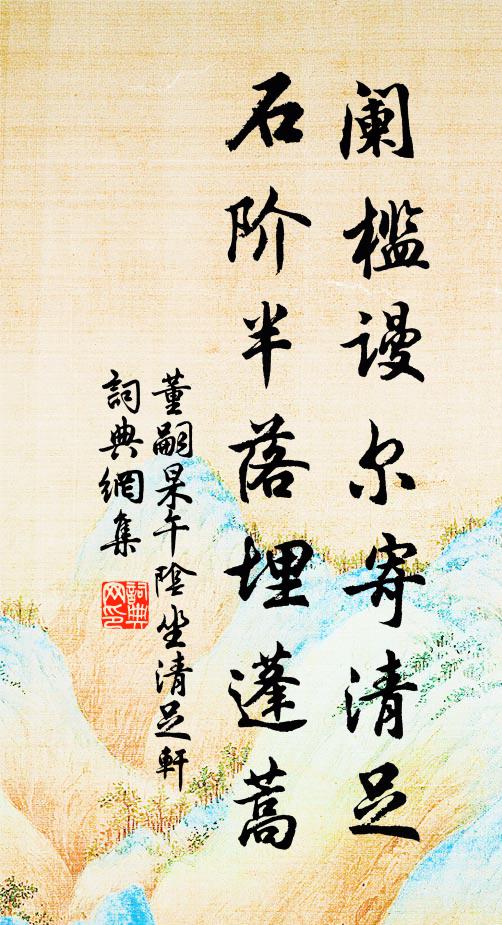 阑槛谩尔寄清足
石阶半落埋蓬蒿
董嗣杲午陰坐清足軒
詞典網集
詞典网印